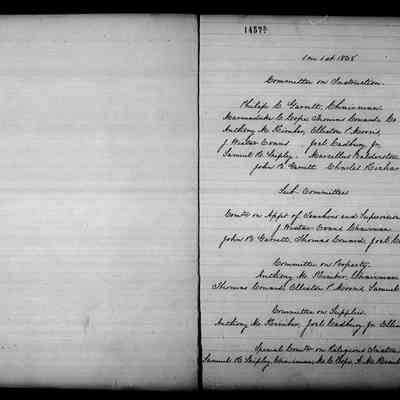 1457 2.
1 mo 1st 18
Committee on Instruction.
Philip C. Garrett, Chairman
Marmaduke C. Cope, Thomas Conard, Co
Anthony M. Kimber, Elliston P. Morris,
J. Wistar Evans Joel Cadbury, Jr.
Samuel R. Shipley. Marcellus Balderston
John B. Garrett Charles Richar
Sub-Committees
Comte. on Appt. of Teachers and Supervision
J. Wistar Evans Chairman
John B. Garrett, Thomas Conard, Joel C
Committee on Property.
Anthony M. Kimber, Chairman
Thomas Conard, Elliston P. Morris, Samuel
Committee on Supplies
Anthony M. Kimber, Joel Cadbury, Jr. Ellis
Special Comte. on Religious Instruc
Samuel R. Shipley, Chairman, M. C. Cope, A. M. Kimb